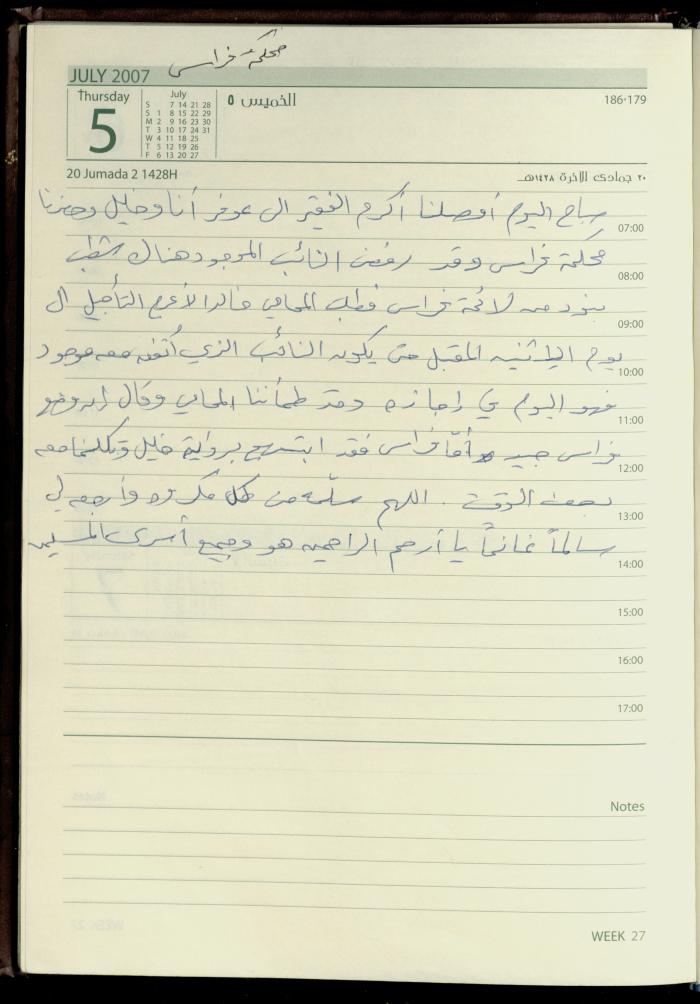 محكمة فراس
JULY 2007
Thursday
5
July
S 7 14 21 28
S 1 8 15 22 29
M 2 9 16 23 30
T 3 10 17 24 31
W 4 11 18 25
T 5 12 19 26
F 6 13 20 27
الخميس ٥
186-179
20 Jumada 2 1428H
٢٠ جمادى الآخرة ١٤٢٨هـ
صباح اليوم أوصلنا أكرم الفقير الى عوفر أنا وخليل وحضرنا
07:00
محكمة فراس وقد رفض النائب الموجود هناك شطب
08:00
بنود من لائحة فراس فطلب المحامي خالد الأعرج التأجيل ال
09:00
يوم الاثنين المقبل حتى يكون النائب الذي أتفق معه موجود
10:00
فهو اليوم في إجازه وقد طمأننا المحامي وقال إن وضع
11:00
فراس جيد وأمّا فراس فقد ابتهج برؤية خليل وتكلمنا معه
12:00
بعض الوقت . اللهم سلّمه من كل مكروه وأرجعه لي
13:00
سالماً غانماً يا أرحم الراحمين هو وجميع أسرى المسلمين
14:00
15:00
16:00
17:00
Notes
WEEK 27